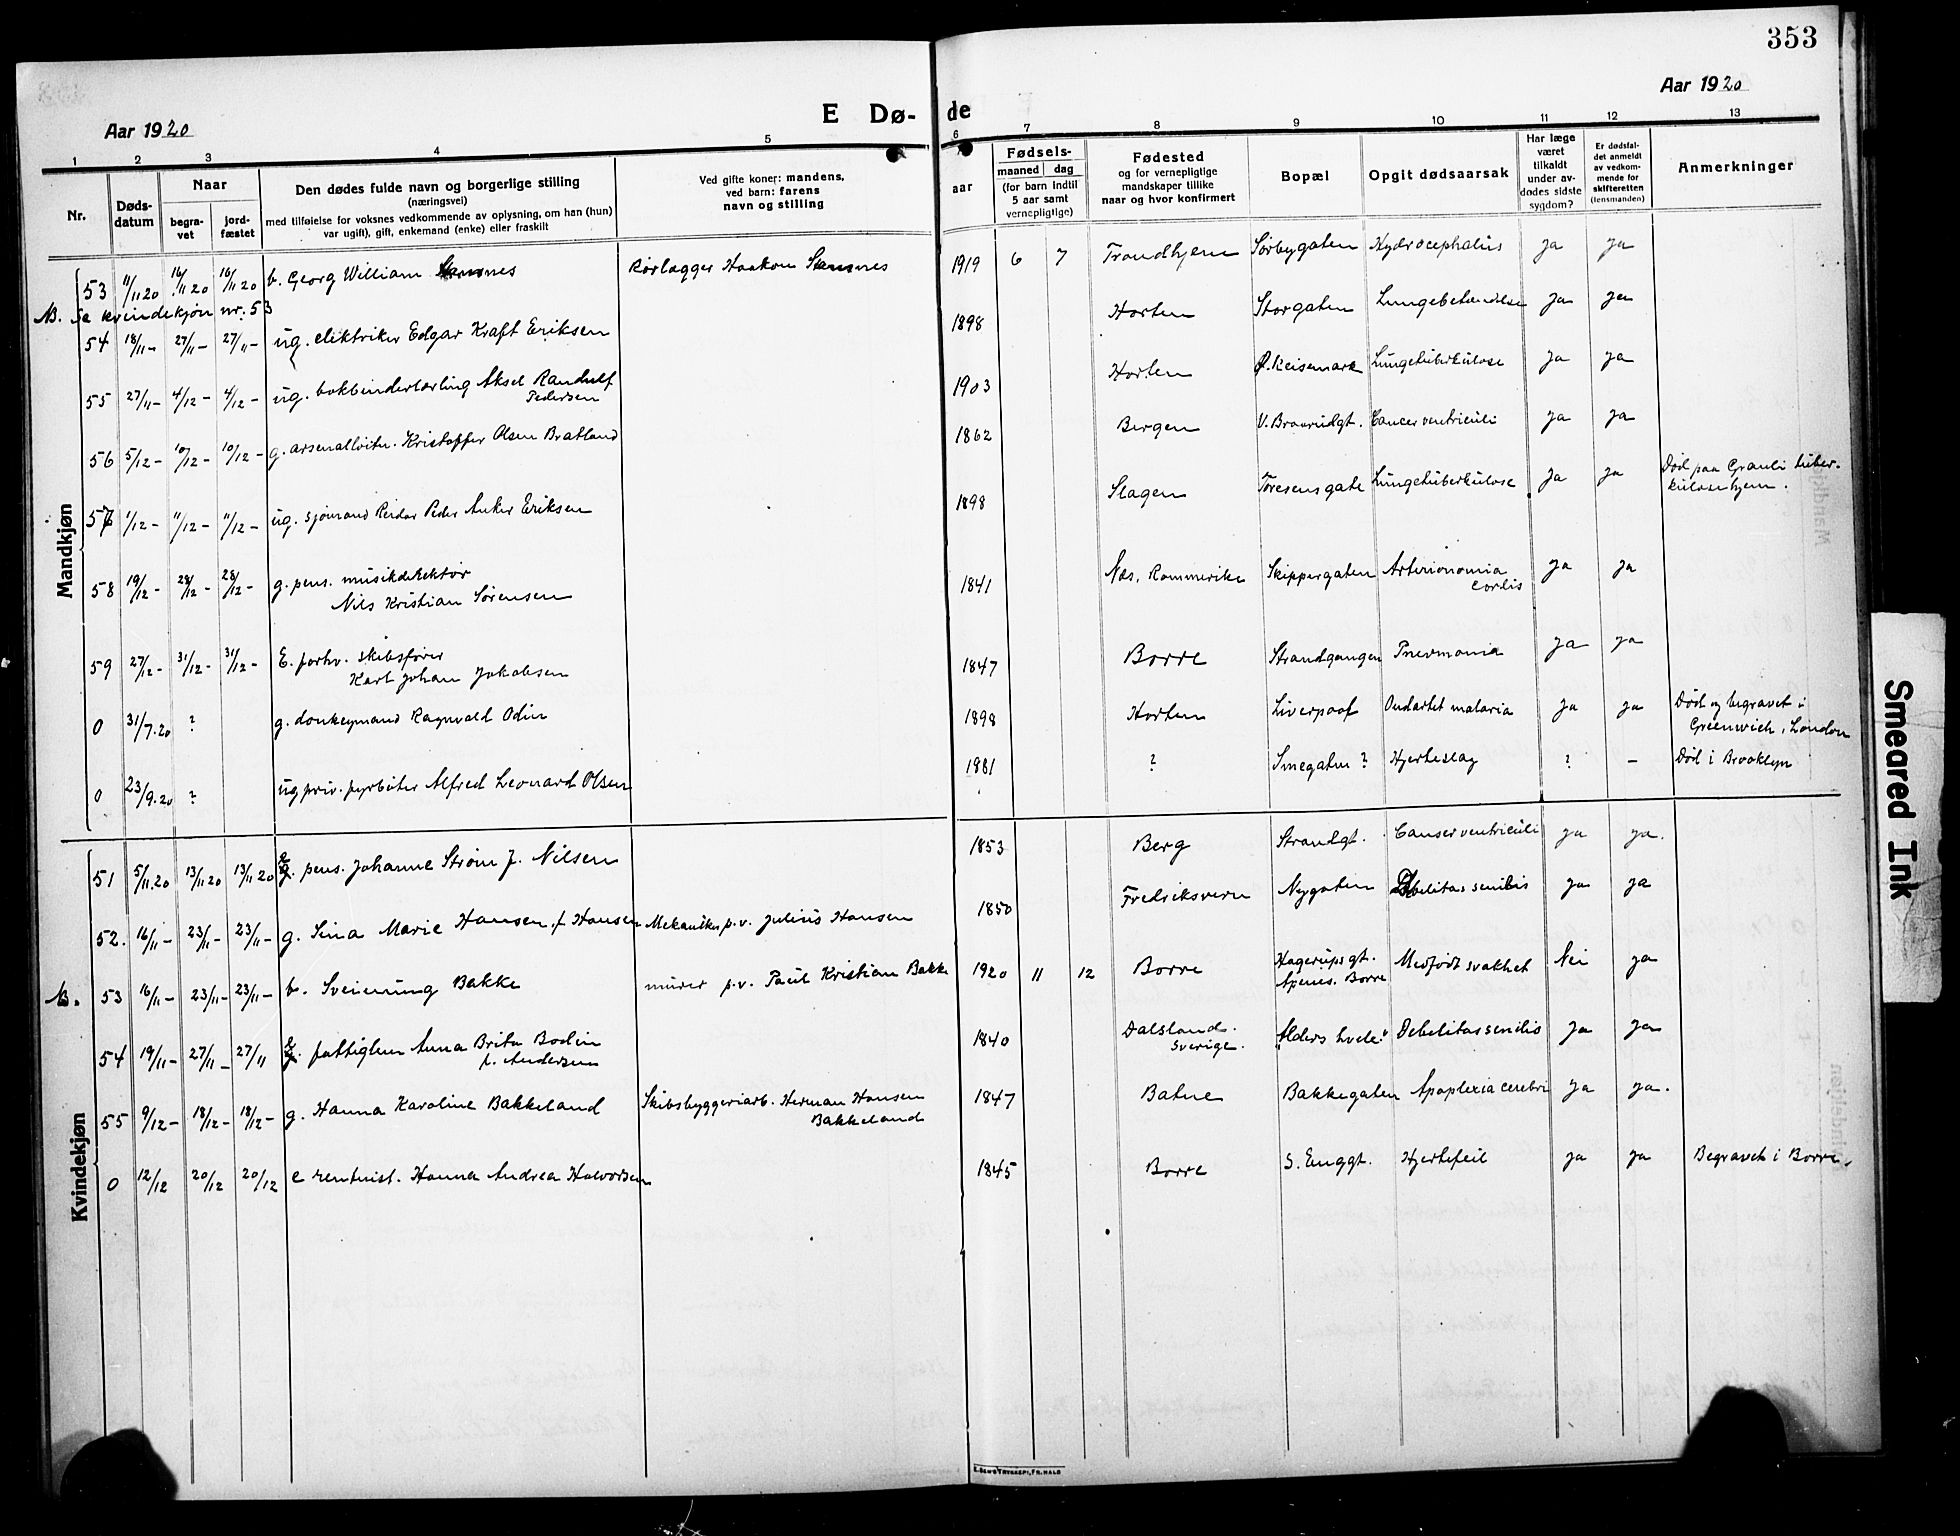 353
Aar 1920
E Dø-
de
Aar 1920
1 2 3 4 5 6 7 8 9 10 11 12 13
Nr.
Døds-
datum
Naar
begra-
vet
jord-
fæstet
Den dødes fulde navn og borgerlige stilling
(næringsvei)
med tilføielse for voksnes vedkommende av oplysning, om han (hun)
var ugift), gift, enkemand (enke) eller fraskilt
Ved gifte koner: mandens,
ved barn: farens
navn og stilling
aar
Fødsels-
maaned dag
(for barn indtil
5 aar samt
vernepligtige)
Fødested
og for vernepligtige
mandskaper tillike
naar og hvor konfirmert
Bopæl
Opgit dødsaarsak
Har læge
været
tilkaldt
under av-
dødes sidste
sygdom?
Er dødsfal-
det anmeldt
av vedkom-
mende for
skifteretten
(lensmanden)
Anmerkninger
Mandkjøn
53 11/11 20 16/11 20 16/11 20 b. Georg William Stamnes Rørlægger Haakon Stamnes 1919 6 7 Trondhjem Sørbygaten Hydrocephalus ja ja
NB. Se kvindekjøn nr. 53
54 18/11 - 27/11 - 27/11 - ug. elektriker Edgar Kraft Eriksen 1898 Horten Storgaten Lungebetændelse ja ja
55 27/11 - 4/12 - 4/12 - ug. bokbinderlærling Aksel Randulf
Pedersen 1903 Horten Ø. Keisemark Lungetuberkulose ja ja
56 5/12 - 10/12 - 10/12 - g. arsenalbetn. Kristoffer Olsen Bratland 1862 Bergen V. Braarudgt. Cancer ventriculi ja ja
57 1/12 - 11/12 - 11/12 - ug. sjømand Reidar Peder Anker Eriksen 1898 Slagen Toresensgate Lungetuberkulose ja ja Død paa Grauli tuber-
kulosehjem.
58 19/12 - 28/12 - 28/12 - g. pens. musikdirektør
Nils Kristian Sørensen 1841 Nes, Rommerike Skippergaten cordis ja ja
59 27/12 - 31/12 - 31/12 - E. forhv. skibsfører
Karl Johan Jakobsen 1847 Borre Strandgangen Pnevmonia ja ja
0 31/7.20 ? g. donkeymand Ragnvald Odin 1898 Horten Liverpool Ondartet malaria ja ja Død og begravet i
Greenwich, London
0 23/9.20 ? ug priv. fyrbøter Alfred Leonard Olsen 1981 ? Smegaten ? Hjerteslag ? - Død i Brooklyn
Kvindekjøn
51 5/11.20 13/11 20 13/11 20 E. pens. Johanne Strøm f. Nilsen 1853 Berg Strandgt. Canser ventriculi ja ja.
52. 16/11 - 23/11 - 23/11 - g. Lina Marie Hansen, f. Hansen Mekaniker p.v. Julius Hansen 1850 Fredriksvern Nygaten Debelitas senilis ja ja
NB. 53 16/11 - 23/11 - 23/11 - b. Sveinung Bakke murer p.v. Paul Kristian Bakke 1920 11 12 Borre Hagerupsgt.
Apenes. Borre Medfødt svakhet Nei ja
54 19/11 - 27/11 - 27/11 E. fattiglem Anna Brita Bodin
f. Andersen 1840 Dalsland.
Sverige. "Alders hvile" Debelitas senilis ja ja
55 9/12 - 18/12 - 18/12 - g. Hanna Karoline Bakkeland Skibsbyggeriarb. Herman Hansen
Bakkeland 1847 Batne Bakkegaten Apoplexia cerebri ja ja.
0 12/12 20/12 20/12 e rentnist. Hanna Andrea Halvorsen 1845 Borre S. Enggt. Hjertefeil ja ja Begravet i Borre.
Smeared Ink